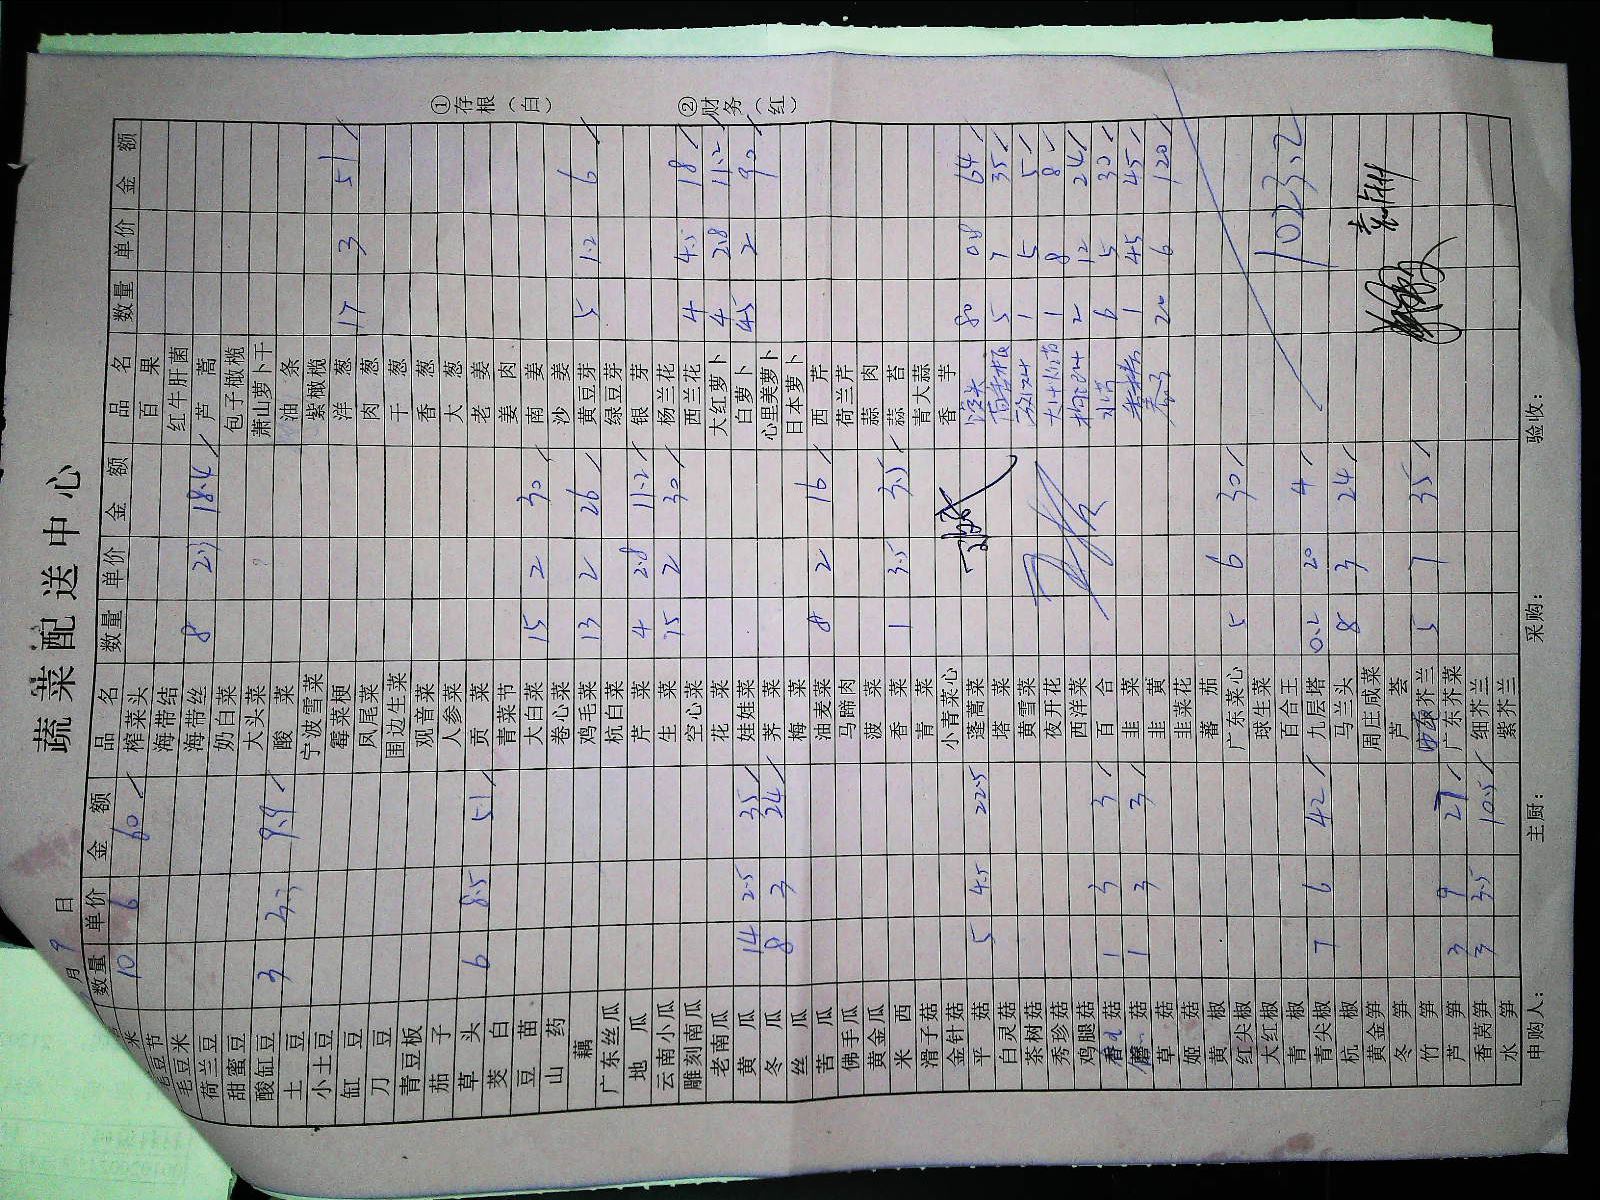 蔬菜配送中心
月 9 日
品名 数量 单价 金额 品名 数量 单价 金额
米 10 6 60 榨菜头 百果
豆节 海带结 红牛肝菌
毛豆米 海带丝 8 2.3 18.4 芦蒿
荷兰豆 奶白菜 包子橄榄
甜蜜豆 大头菜 萧山萝卜干
酸缸豆 3 3.3 9.9 酸菜 油条
土豆 宁波雪菜 紫橄榄
小土豆 霉菜梗 洋葱 17 3 51
缸豆 凤尾菜 肉葱
刀豆 围边生菜 干葱
青豆板 观音菜 香葱
茄子 人参菜 大葱
草头 6 8.5 51 贡菜 老姜
茭白 青菜节 姜肉
豆苗 大白菜 15 2 30 南姜
山药 卷心菜 沙姜
藕 鸡毛菜 13 2 26 黄豆芽 5 1.2 6
广东丝瓜 杭白菜 绿豆芽
地瓜 芹菜 4 2.8 11.2 银芽
云南小瓜 生菜 15 2 30 杨兰花
雕刻南瓜 空心菜 西兰花 4 4.5 18
老南瓜 花菜 大红萝卜 4 2.8 11.2
黄瓜 14 2.5 35 娃娃菜 白萝卜 45 2 90
冬瓜 8 3 24 荠菜 心里美萝卜
丝瓜 梅菜 日本萝卜
苦瓜 油麦菜 8 2 16 西芹
佛手瓜 马蹄肉 荷兰芹
黄金瓜 菠菜 蒜肉
米西 香菜 1 3.5 3.5 蒜苔
滑子菇 青菜 青大蒜
金针菇 小青菜心 香芋
平菇 5 4.5 22.5 蓬蒿菜 80 0.8 64
白灵菇 塔菜 5 7 35
茶树菇 黄雪菜 1 5 5
秀珍菇 夜开花 1 8 8
鸡腿菇 西洋菜 2 12 24
香菇 1 3 3 百合 6 5 30
蘑菇 1 3 3 韭菜 1 45 45
草菇 韭黄 20 6 120
姬菇 韭菜花
黄椒 蕃茄
红尖椒 广东菜心 5 6 30
大红椒 球生菜
青椒 百合王 1023.2
青尖椒 7 6 42 九层塔 0.2 20 4
杭椒 马兰头 8 3 24
黄金笋 周庄咸菜
冬笋 芦荟
竹笋 芥兰 5 7 35
芦笋 3 9 27 广东芥菜
香莴笋 3 3.5 10.5 细芥兰
水笋 紫芥兰
申购人： 主厨： 采购： 验收：
①存根（白）
②财务（红）